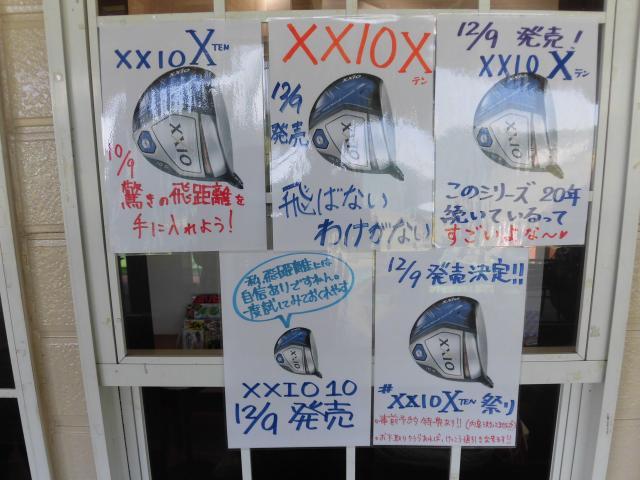 XXIO X TEN
XXIO
XXIO
10/9
驚きの飛距離を
手に入れよう!
XXIO X
テン
12/9
発売
XXIO
XXIO
飛ばない
わけがない
12/9 発売!
XXIO X
テン
XXIO
XXIO
このシリーズ 20年
続いているって
すごいよな〜♥
私、飛距離には
自信ありですねん。
一度試してみておくれやす
XXIO
XXIO 10
12/9 発売
12/9 発売決定!!
XXIO
XXIO
#
XXIO X TEN 祭り